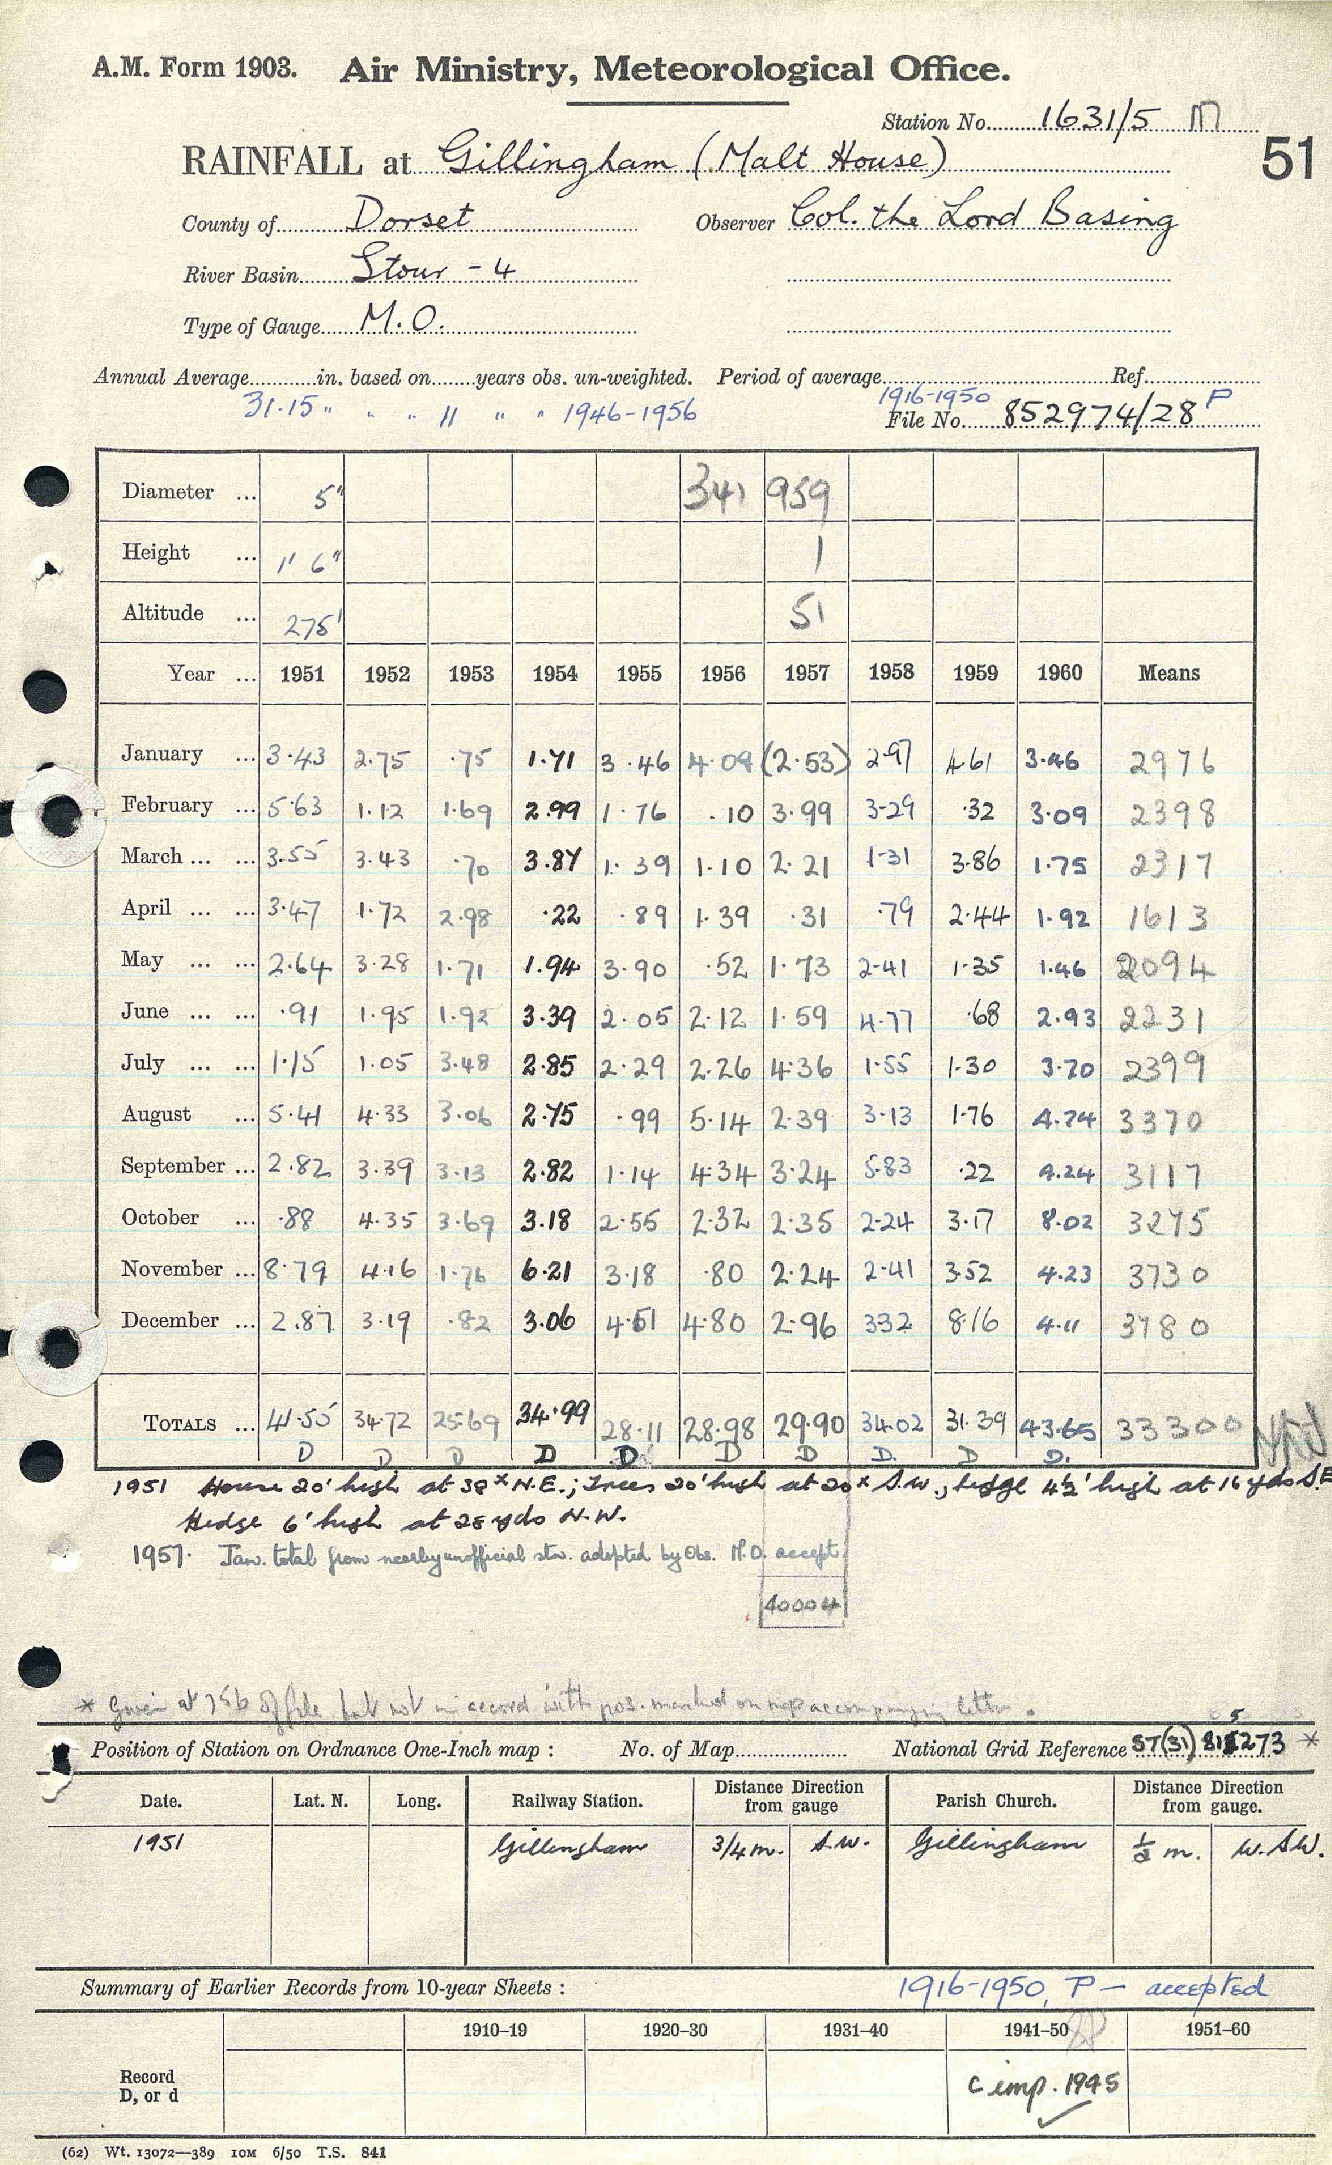 A.M. Form 1903. Air Ministry, Meteorological Office.
Station No. 1631/5 M
RAINFALL at Gillingham (Malt House)
51
County of Dorset Observer Col. the Lord Basing
River Basin Stour - 4
Type of Gauge M.O.
Annual Average in. based on years obs. un-weighted. Period of average Ref.
31.15 " " " 11 " " 1946-1956 1916-1950 P
File No. 852974/28
Diameter ... 5" 341 959
Height ... 1' 6" 1
Altitude ... 275' 51
Year ... 1951 1952 1953 1954 1955 1956 1957 1958 1959 1960 Means
January ... 3.43 2.75 .75 1.71 3.46 4.08 (2.53) 2.97 4.61 3.46 2976
February ... 5.63 1.12 1.69 2.99 1.76 .10 3.99 3.29 .32 3.09 2398
March ... ... 3.55 3.43 .70 3.87 1.39 1.10 2.21 1.31 3.86 1.75 2317
April ... ... 3.47 1.72 2.98 .22 .89 1.39 .31 .79 2.44 1.92 1613
May ... ... 2.64 3.28 1.71 1.94 3.90 .52 1.73 2.41 1.35 1.46 2094
June ... ... .91 1.95 1.92 3.39 2.05 2.12 1.59 4.77 .68 2.93 2231
July ... ... 1.15 1.05 3.48 2.85 2.29 2.26 4.36 1.55 1.30 3.70 2399
August ... 5.41 4.33 3.06 2.75 .99 5.14 2.39 3.13 1.76 4.74 3370
September ... 2.82 3.39 3.13 2.82 1.14 4.34 3.24 5.83 .22 4.24 3117
October ... .88 4.35 3.69 3.18 2.55 2.32 2.35 2.24 3.17 8.02 3275
November ... 8.79 4.16 1.76 6.21 3.18 .80 2.24 2.41 3.52 4.23 3730
December ... 2.87 3.19 .82 3.06 4.51 4.80 2.96 332 8.16 4.11 3780
TOTALS ... 41.55 34.72 25.69 34.99 28.11 28.98 29.90 34.02 31.39 43.65 33300
D D D D D D D D. D D.
1951 House 20' high at 38x N.E.; Trees 20' high at 20x S.W., hedge 4½' high at 16 yds S.E
Hedge 6' high at 28 yds N.W.
1957. Jan. total from nearby unofficial stn. adopted by Obs. M.O. accept.
40004
* Given at 75b of file but not in accord with pos. marked on map accompanying letter.
Position of Station on Ordnance One-Inch map : No. of Map National Grid Reference ST(31) 815273 *
Date. Lat. N. Long. Railway Station. Distance from gauge Direction Parish Church. Distance from gauge. Direction
1951 Gillingham 3/4 m. S.W. Gillingham ½ m. W.S.W.
Summary of Earlier Records from 10-year Sheets : 1916-1950, P - accepted
1910–19 1920–30 1931–40 1941–50 1951–60
Record
D, or d
C imp. 1945
(62) Wt. 13072—389 10M 6/50 T.S. 841